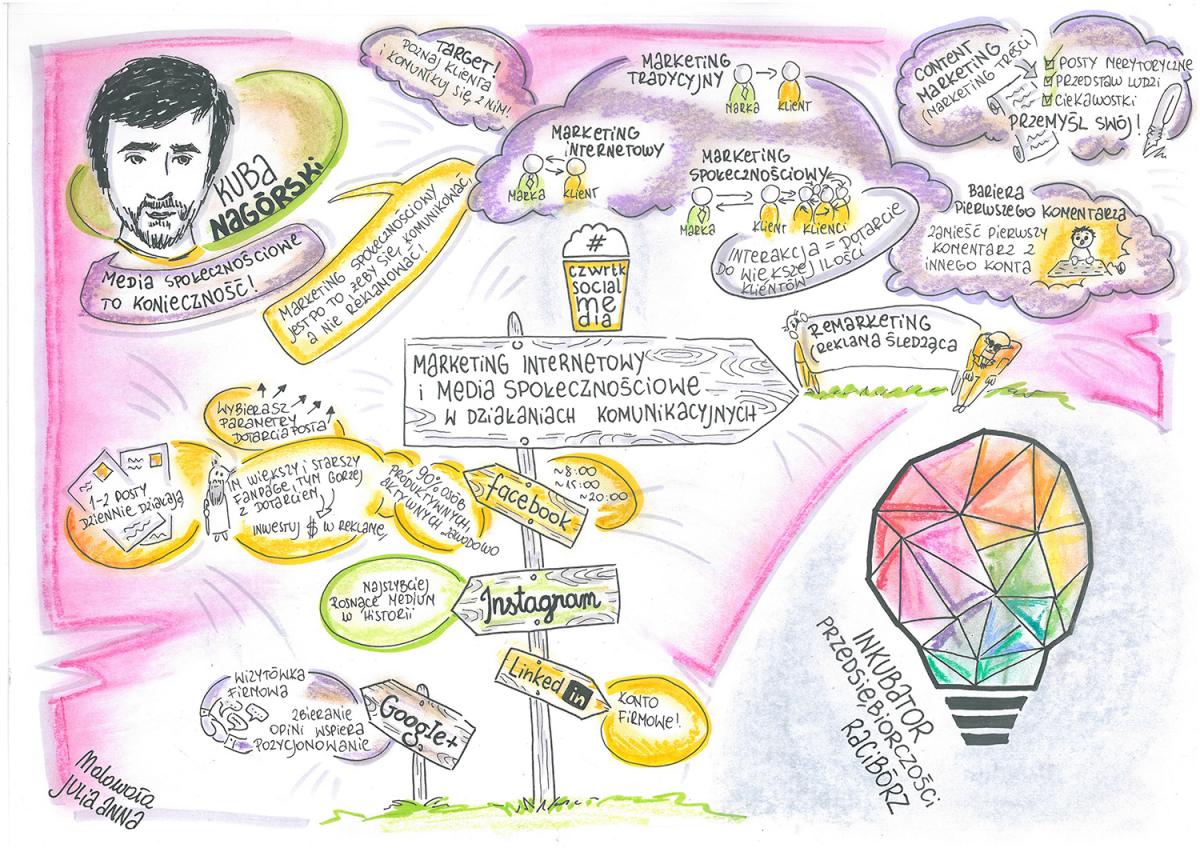 KUBA
NAGÓRSKI
MEDIA SPOŁECZNOŚCIOWE
TO KONIECZNOŚĆ!
TARGET!
POZNAJ KLIENTA
I KOMUNIKUJ SIĘ Z NIM!
MARKETING SPOŁECZNOŚCIOWY
JEST PO TO ŻEBY SIĘ KOMUNIKOWAĆ,
A NIE REKLAMOWAĆ!
MARKETING
TRADYCYJNY
MARKA
KLIENT
MARKETING
INTERNETOWY
MARKA
KLIENT
MARKETING
SPOŁECZNOŚCIOWY
MARKA
KLIENT
KLIENCI
INTERAKCJA = DOTARCIE
DO WIĘKSZEJ ILOŚCI
KLIENTÓW
CONTENT
MARKETING
(MARKETING TREŚCI)
POSTY MERYTORYCZNE
PRZEDSTAW LUDZI
CIEKAWOSTKI
PRZEMYŚL SWÓJ!
BARIERA
PIERWSZEGO KOMENTARZA
ZAMIEŚĆ PIERWSZY
KOMENTARZ Z
INNEGO KONTA
#
CZWRTK
SOCIAL
ME
DIA
REMARKETING
(REKLAMA ŚLEDZĄCA
MARKETING INTERNETOWY
I MEDIA SPOŁECZNOŚCIOWE
W DZIAŁANIACH KOMUNIKACYJNYCH
WYBIERASZ
PARAMETRY
DOTARCIA POSTA
1-2 POSTY
DZIENNIE DZIAŁAJĄ
IM WIĘKSZY I STARSZY
FANPAGE, TYM GORZEJ
Z DOTARCIEM
INWESTUJ $ W REKLAMĘ,
90% OSÓB
PRODUKTYWNYCH,
AKTYWNYCH ZAWODOWO
facebook
~8:00
~15:00
~20:00
NAJSZYBCIEJ
ROSNĄCE MEDIUM
W HISTORII
Instagram
Linked in
KONTO
FIRMOWE!
WIZYTÓWKA
FIRMOWA
ZBIERANIE
OPINI WSPIERA
POZYCJONOWANIE
Google+
INKUBATOR
PRZEDSIĘBIORCZOŚCI
RACIBÓRZ
Malowała
JULIA ANNA